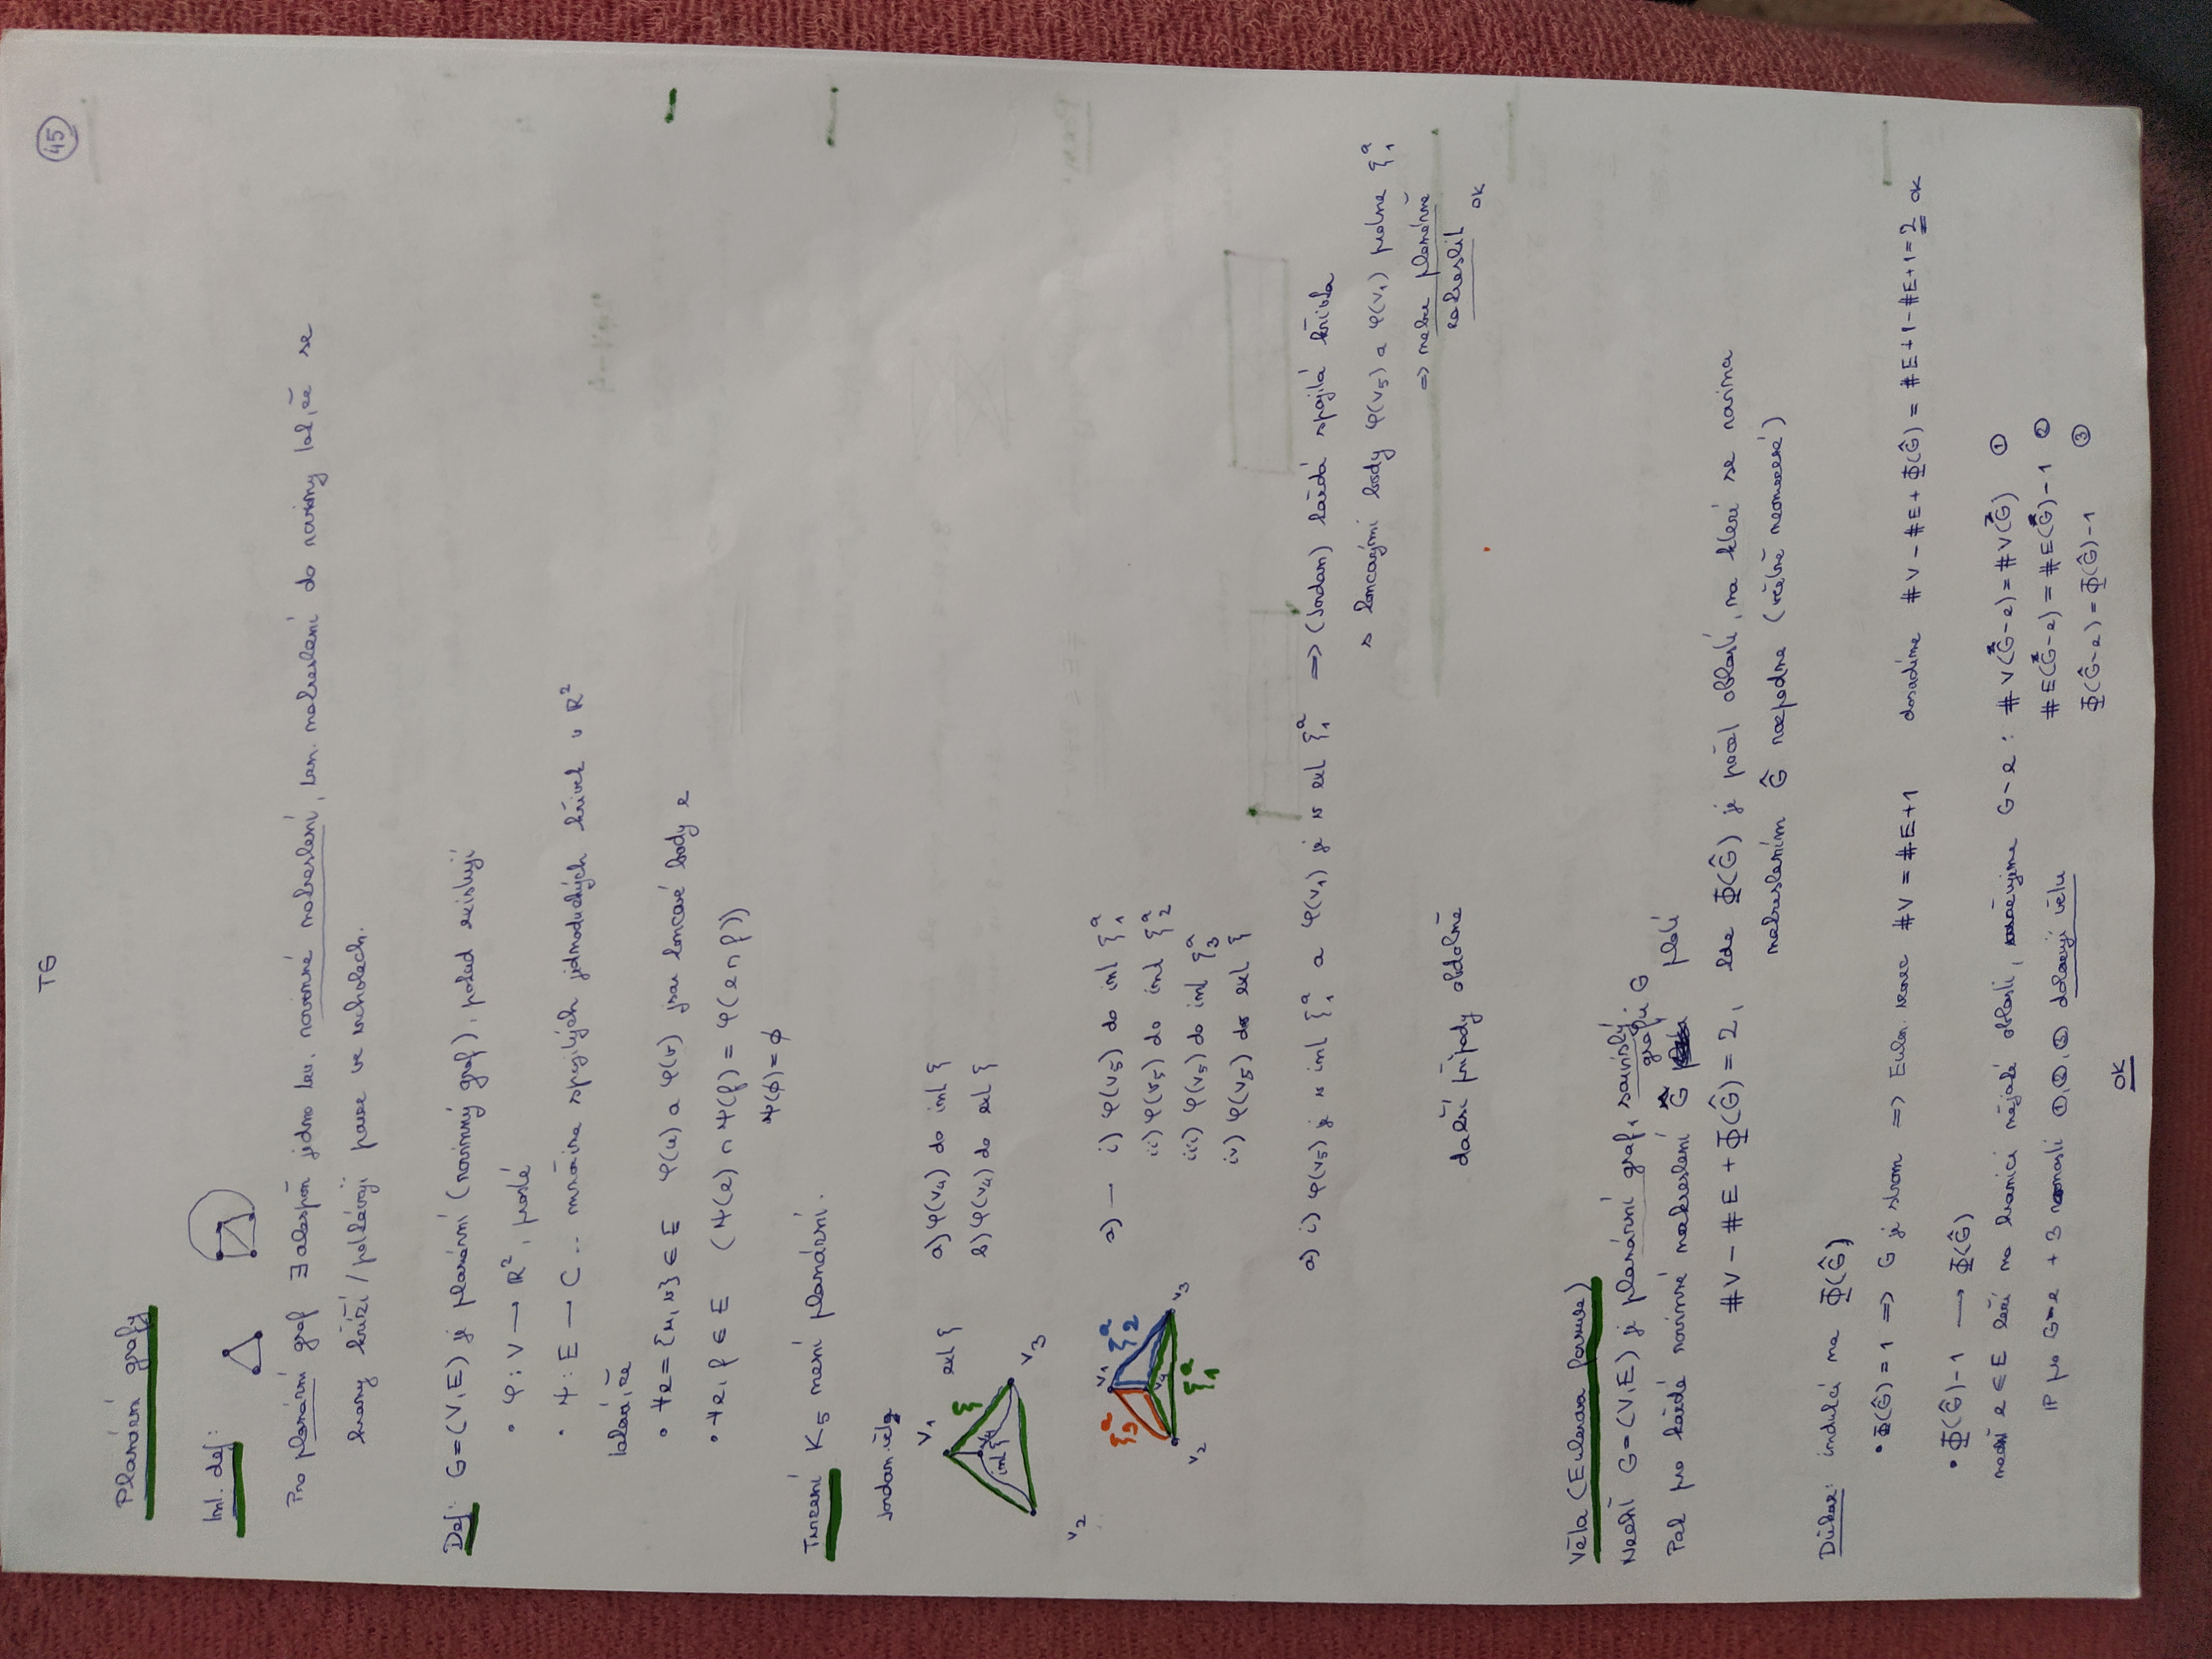 TG
45
Planární grafy
Int. def:
Pro planární graf ∃ alespoň jedno tzv. rovinné nakreslení, tzn. nakreslení do roviny tak, že se
hrany kříží / potkávají pouze ve vrcholech.
Def: G=(V,E) je planární (rovinný graf), pokud existují
• φ: V → ℝ², prosté
• ψ: E → C .. množina spojitých jednoduchých křivek v ℝ²
taková, že
• ∀e={u,v} ∈ E φ(u) a φ(v) jsou koncové body e
• ∀e,f ∈ E (ψ(e) ∩ ψ(f) = φ(e∩f))
ψ(∅)=∅
Tvrzení K₅ není planární.
Jordan. věty
v₁
ext ξ
ξ
v₄
int ξ
v₂
v₃
a) φ(v₄) do int ξ
b) φ(v₄) do ext ξ
v₁
ξ₃ᵃ
ξ₂ᵃ
v₄
v₂
v₃
ξ₁ᵃ
a) — i) φ(v₅) do int ξ₁ᵃ
ii) φ(v₅) do int ξ₂ᵃ
iii) φ(v₅) do int ξ₃ᵃ
iv) φ(v₅) do ext ξ
a) i) φ(v₅) je v int ξ₁ᵃ a φ(v₁) je v ext ξ₁ᵃ => (Jordan) každá spojitá křivka
s koncovými body φ(v₅) a φ(v₁) protne ξ₁ᵃ
=> nelze planárně
zakreslit
OK
další případy obdobně
Věta (Eulerova formule)
Nechť G=(V,E) je planární graf, souvislý.
Pak pro každé rovinné nakreslení Ĝ grafu G platí
#V − #E + Φ(Ĝ) = 2, kde Φ(Ĝ) je počet oblastí, na které se rovina
nakreslením Ĝ rozpadne (včetně neomezené)
Důkaz: indukcí na Φ(Ĝ)
• Φ(Ĝ)=1 => G je strom => Euler. vzorec #V = #E+1 dosadíme #V − #E + Φ(Ĝ) = #E+1−#E+1=2 OK
• Φ(Ĝ)−1 → Φ(Ĝ)
nechť e ∈ E leží na hranici nějaké oblasti, označujme G−e : #V(G−e) = #V(G) ①
#E(G−e) = #E(G)−1 ②
Φ(Ĝ−e) = Φ(Ĝ)−1 ③
IP pro G−e + 3 rovnosti ①,②,③ dokazují větu
OK